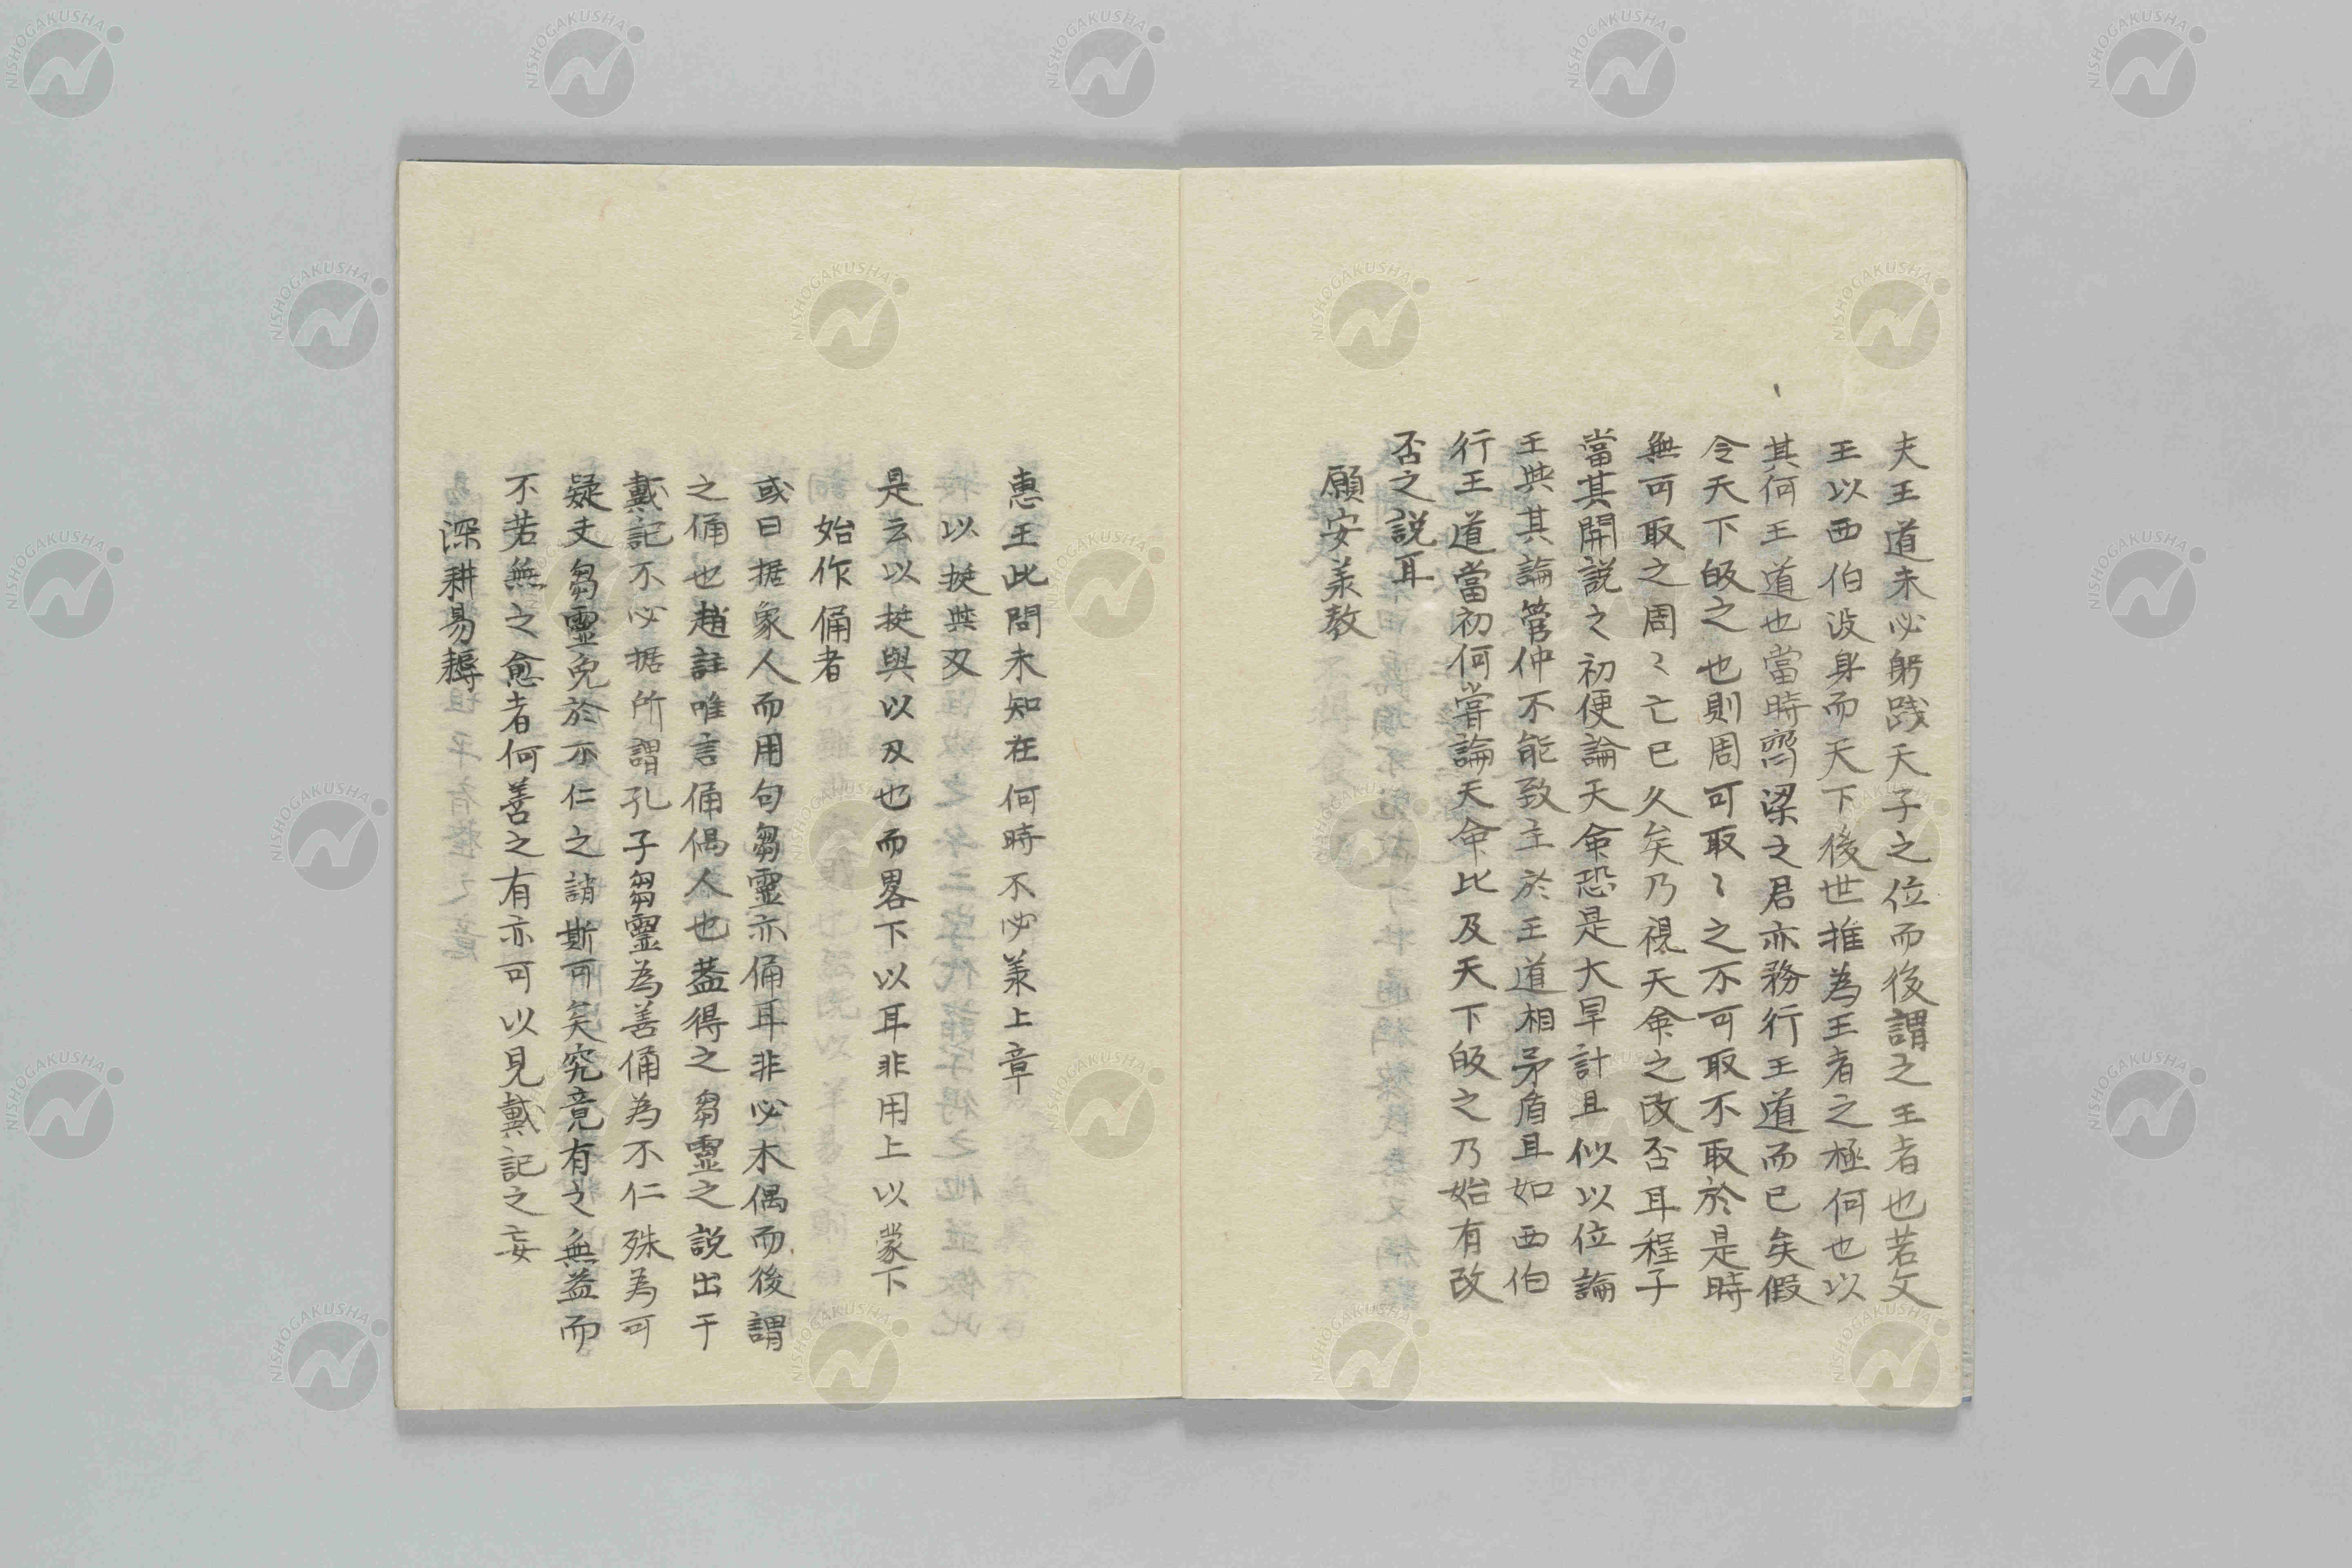 夫王道未必躬践天子之位而後謂之王者也若文
王以西伯没身而天下後世推為王者之極何也以
其何王道也當時齊梁之君亦務行王道而已矣假
令天下皈之也則周可取〻之不可取不取於是時
無可取之周〻亡已久矣乃視天命之改否耳程子
當其開説之初便論天命恐是大早計且似以位論
王與其論管仲不能致主於王道相矛盾且如西伯
行王道當初何嘗論天命比及天下皈之乃始有改
否之説耳
願安羕教
惠王此問未知在何時不必羕上章
以挺與刃
是云以挺與以刃也而畧下以耳非用上以蒙下
始作俑者
或曰据象人而用句芻靈亦俑耳非必木偶而後謂
之俑也趙註唯言俑偶人也葢得之芻靈之説出于
戴記不必据所謂孔子芻靈為善俑為不仁殊為可
疑丈芻靈免於不仁之誚斯可矣究竟有之無益而
不若無之愈者何善之有亦可以見戴記之妄
深耕易耨
NISHOGAKUSHA